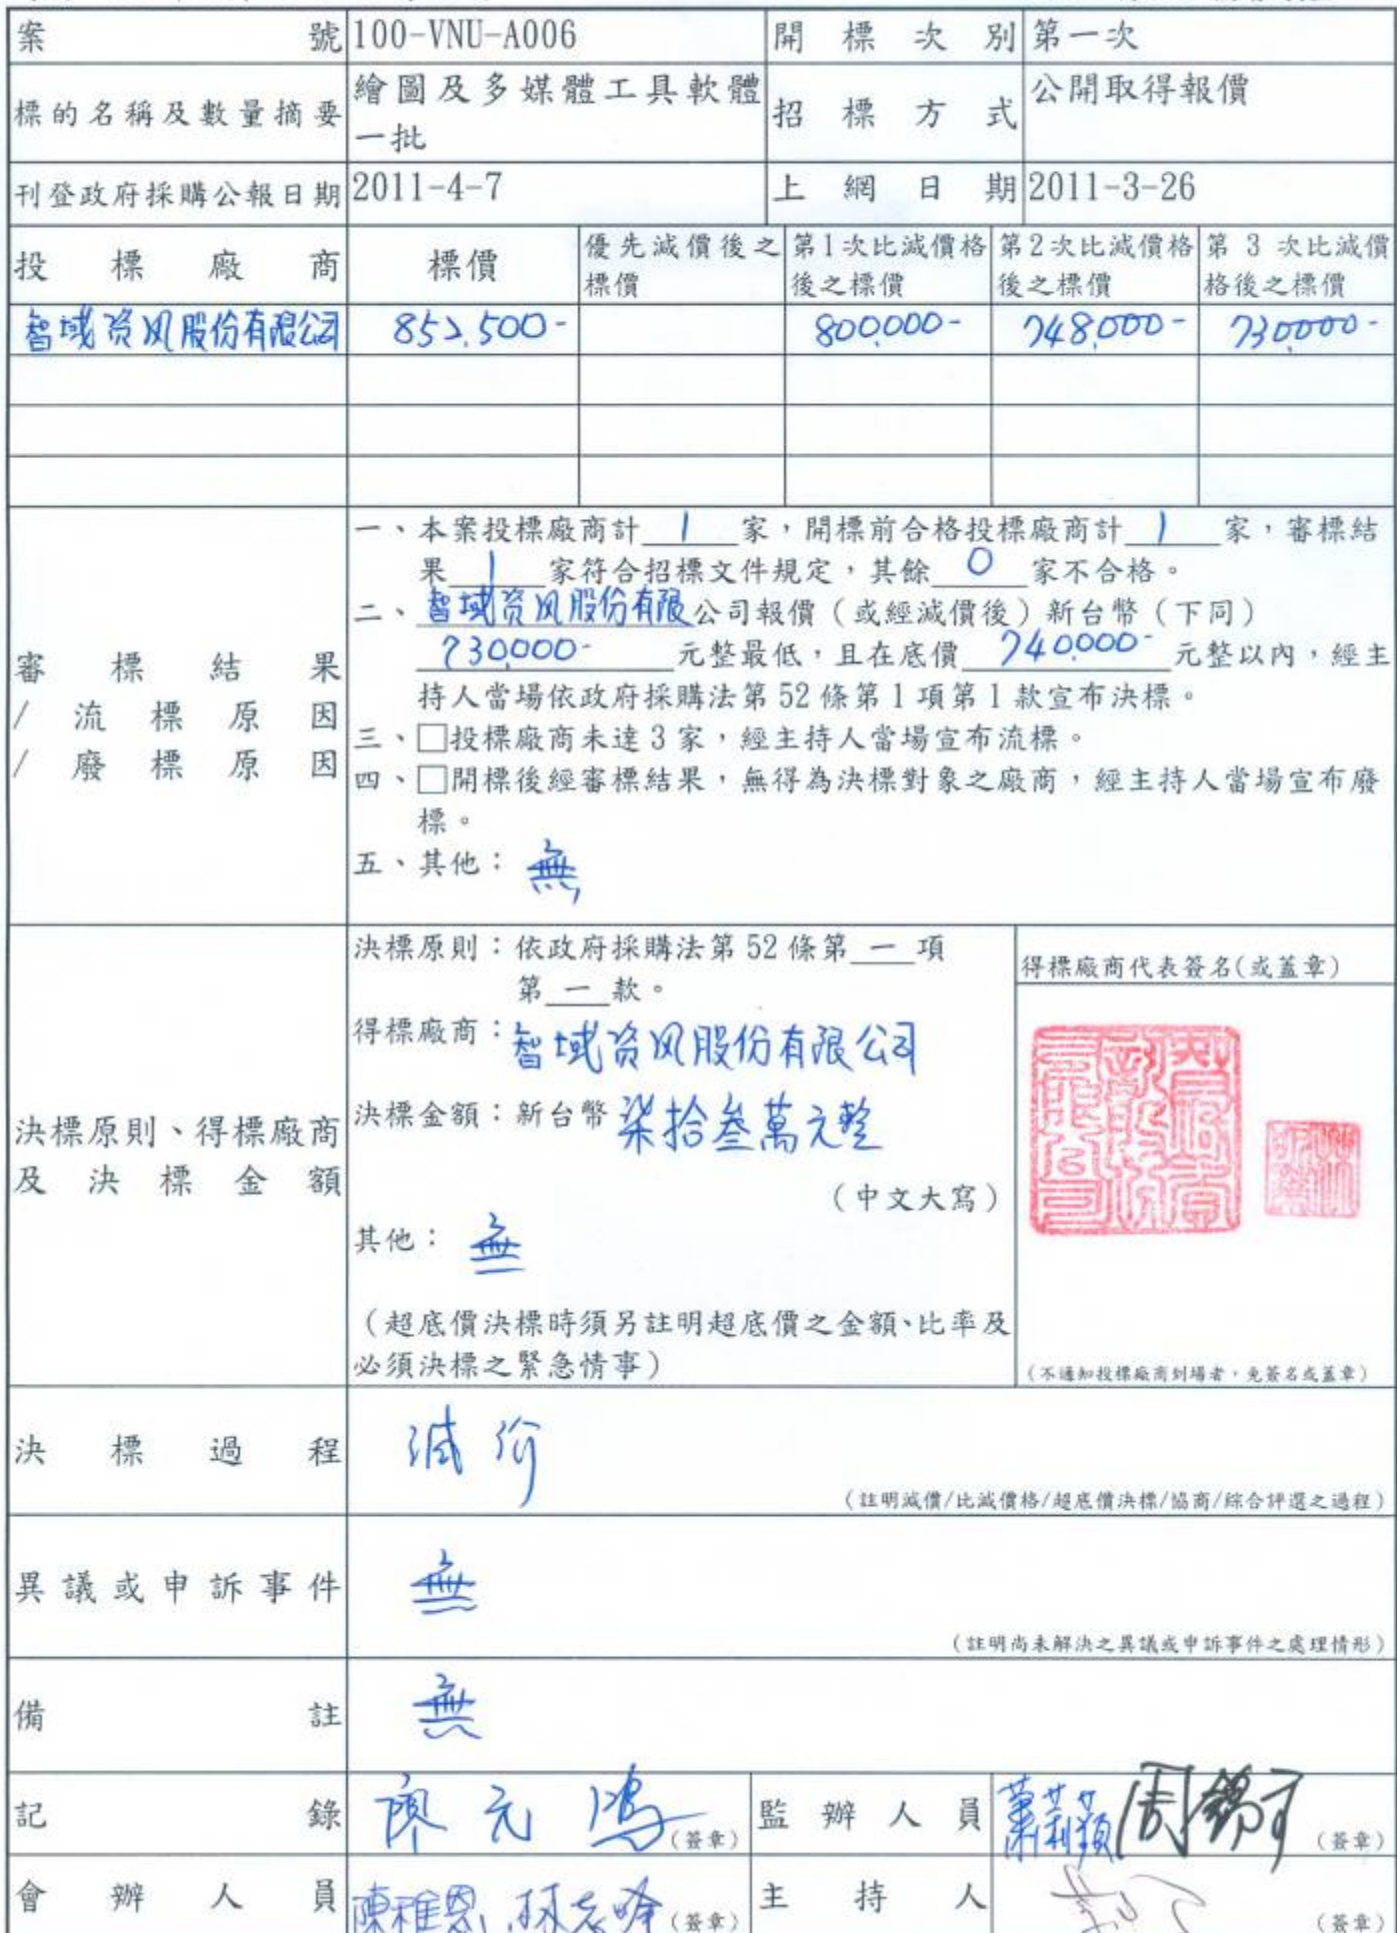 案號 100-VNU-A006 開標次別 第一次
標的名稱及數量摘要 繪圖及多媒體工具軟體
一批
招標方式 公開取得報價
刊登政府採購公報日期 2011-4-7 上網日期 2011-3-26
投標廠商 標價 優先減價後之標價 第1次比減價格後之標價 第2次比減價格後之標價 第3次比減價格後之標價
智域资风股份有限公司 852,500- 800,000- 748,000- 730,000-
審標結果
/流標原因
/廢標原因
一、本案投標廠商計 1 家,開標前合格投標廠商計 1 家,審標結
果 1 家符合招標文件規定,其餘 0 家不合格。
二、智域资风股份有限公司報價(或經減價後)新台幣(下同)
730,000- 元整最低,且在底價 740,000- 元整以內,經主
持人當場依政府採購法第52條第1項第1款宣布決標。
三、□投標廠商未達3家,經主持人當場宣布流標。
四、□開標後經審標結果,無得為決標對象之廠商,經主持人當場宣布廢
標。
五、其他:無
決標原則、得標廠商
及決標金額
決標原則:依政府採購法第52條第 一 項
第 一 款。
得標廠商:智域资风股份有限公司
決標金額:新台幣柒拾叁萬元整
(中文大寫)
其他:無
(超底價決標時須另註明超底價之金額、比率及
必須決標之緊急情事)
得標廠商代表簽名(或蓋章)
(不通知投標廠商到場者,免簽名或蓋章)
決標過程 減价
(註明減價/比減價格/超底價決標/協商/綜合評選之過程)
異議或申訴事件 無
(註明尚未解決之異議或申訴事件之處理情形)
備註 無
記錄 廖元鴻 (簽章) 監辦人員 蕭莉蘋 周錦 (簽章)
會辦人員 陳雅恩、林志 (簽章) 主持人 (簽章)